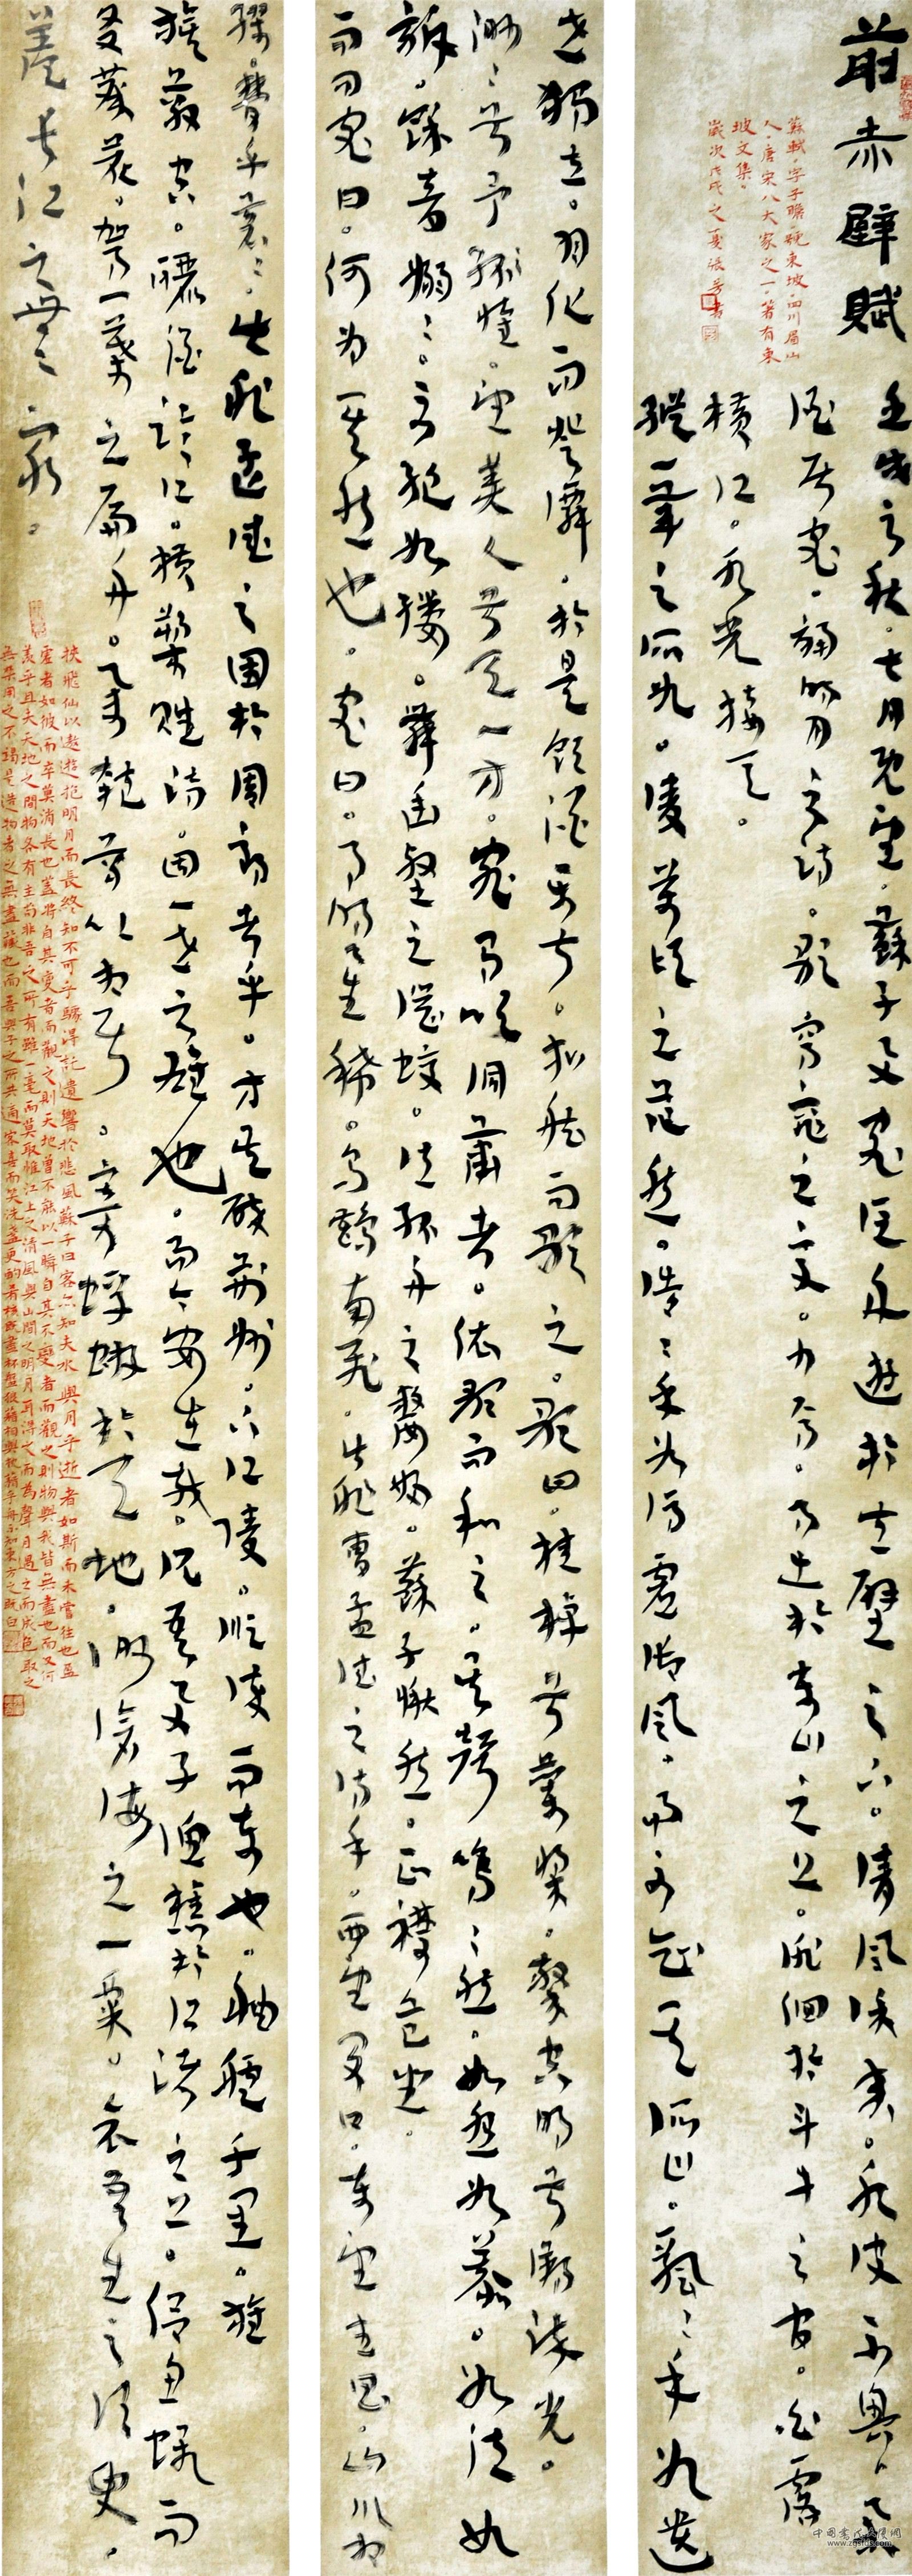 前赤壁賦
蘇軾。字子瞻。號東坡。四川眉山
人。唐宋八大家之一。著有東
坡文集。
歲次戊戌之夏張芳書
壬戌之秋。七月既望。蘇子與客泛舟遊於赤壁之下。清風徐來。水波不興。舉
酒屬客。誦明月之詩。歌窈窕之章。少焉。月出於東山之上。徘徊於斗牛之間。白露
橫江。水光接天。
縱一葦之所如。凌萬頃之茫然。浩浩乎如馮虛御風。而不知其所止。飄飄乎如遺
世獨立。羽化而登僊。於是飲酒樂甚。扣舷而歌之。歌曰。桂棹兮蘭槳。擊空明兮溯流光。
渺渺兮予懷。望美人兮天一方。客有吹洞簫者。依歌而和之。其聲嗚嗚然。如怨如慕。如泣如
訴。餘音嫋嫋。不絕如縷。舞幽壑之潛蛟。泣孤舟之嫠婦。蘇子愀然。正襟危坐。
而問客曰。何為其然也。客曰。月明星稀。烏鵲南飛。此非曹孟德之詩乎。西望夏口。東望武昌。山川相
繆。鬱乎蒼蒼。此非孟德之困於周郎者乎。方其破荊州。下江陵。順流而東也。舳艫千里。旌
旗蔽空。釃酒臨江。橫槊賦詩。固一世之雄也。而今安在哉。況吾與子漁樵於江渚之上。侶魚蝦而
友麋鹿。駕一葉之扁舟。舉匏尊以相屬。寄蜉蝣於天地。渺滄海之一粟。哀吾生之須臾。
羨長江之無窮。
挾飛仙以遨遊抱明月而長終知不可乎驟得託遺響於悲風蘇子曰客亦知夫水與月乎逝者如斯而未嘗往也盈
虛者如彼而卒莫消長也蓋將自其變者而觀之則天地曾不能以一瞬自其不變者而觀之則物與我皆無盡也而又何
羨乎且夫天地之間物各有主苟非吾之所有雖一毫而莫取惟江上之清風與山間之明月耳得之而為聲目遇之而成色取之
無禁用之不竭是造物者之無盡藏也而吾與子之所共適客喜而笑洗盞更酌肴核既盡杯盤狼藉相與枕藉乎舟中不知東方之既白
中國書法家園網
www.zgsfjy.com